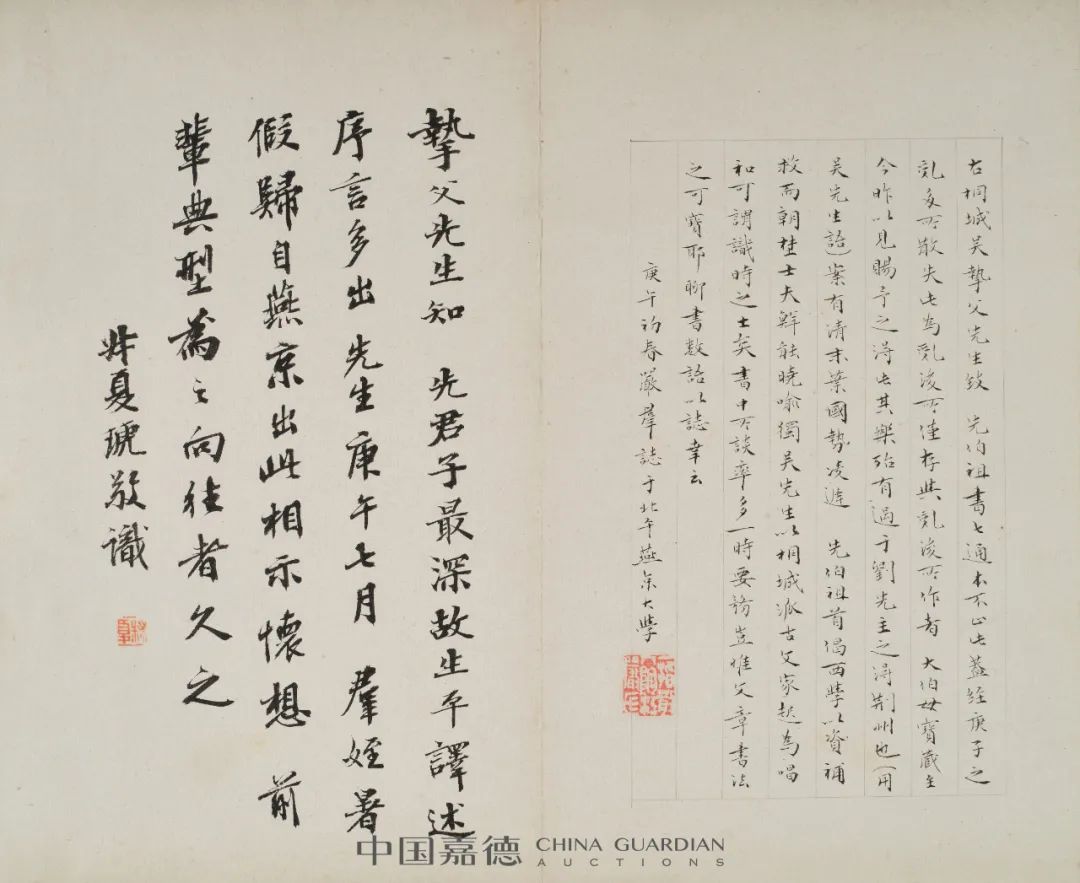 右桐城吴摯父先生致　先伯祖書七通本不止此蓋經庚子之
亂多所散失此為亂後所僅存與亂後所作者　大伯母寶藏至
今昨以見賜予之得此其樂殆有過于劉先主之得荆州也（用
吴先生語）案有清末葉國勢凌遲　先伯祖首倡西學以資補
救而朝士大夫鮮能曉喻獨吴先生以桐城派古文家起為唱
和可謂識時之士矣書中所談率多一時要務豈惟文章書法
之可寶耶聊書數語以誌幸云
庚午初春嚴羣誌于北平燕京大學
摯父先生知　先君子最深故生平譯述
序言多出　先生庚午七月　羣姪暑
假歸自燕京出此相示懷想　前
輩典型為之向往者久之
叔夏琥敬識
中国嘉德 CHINA GUARDIAN
AUCTIONS